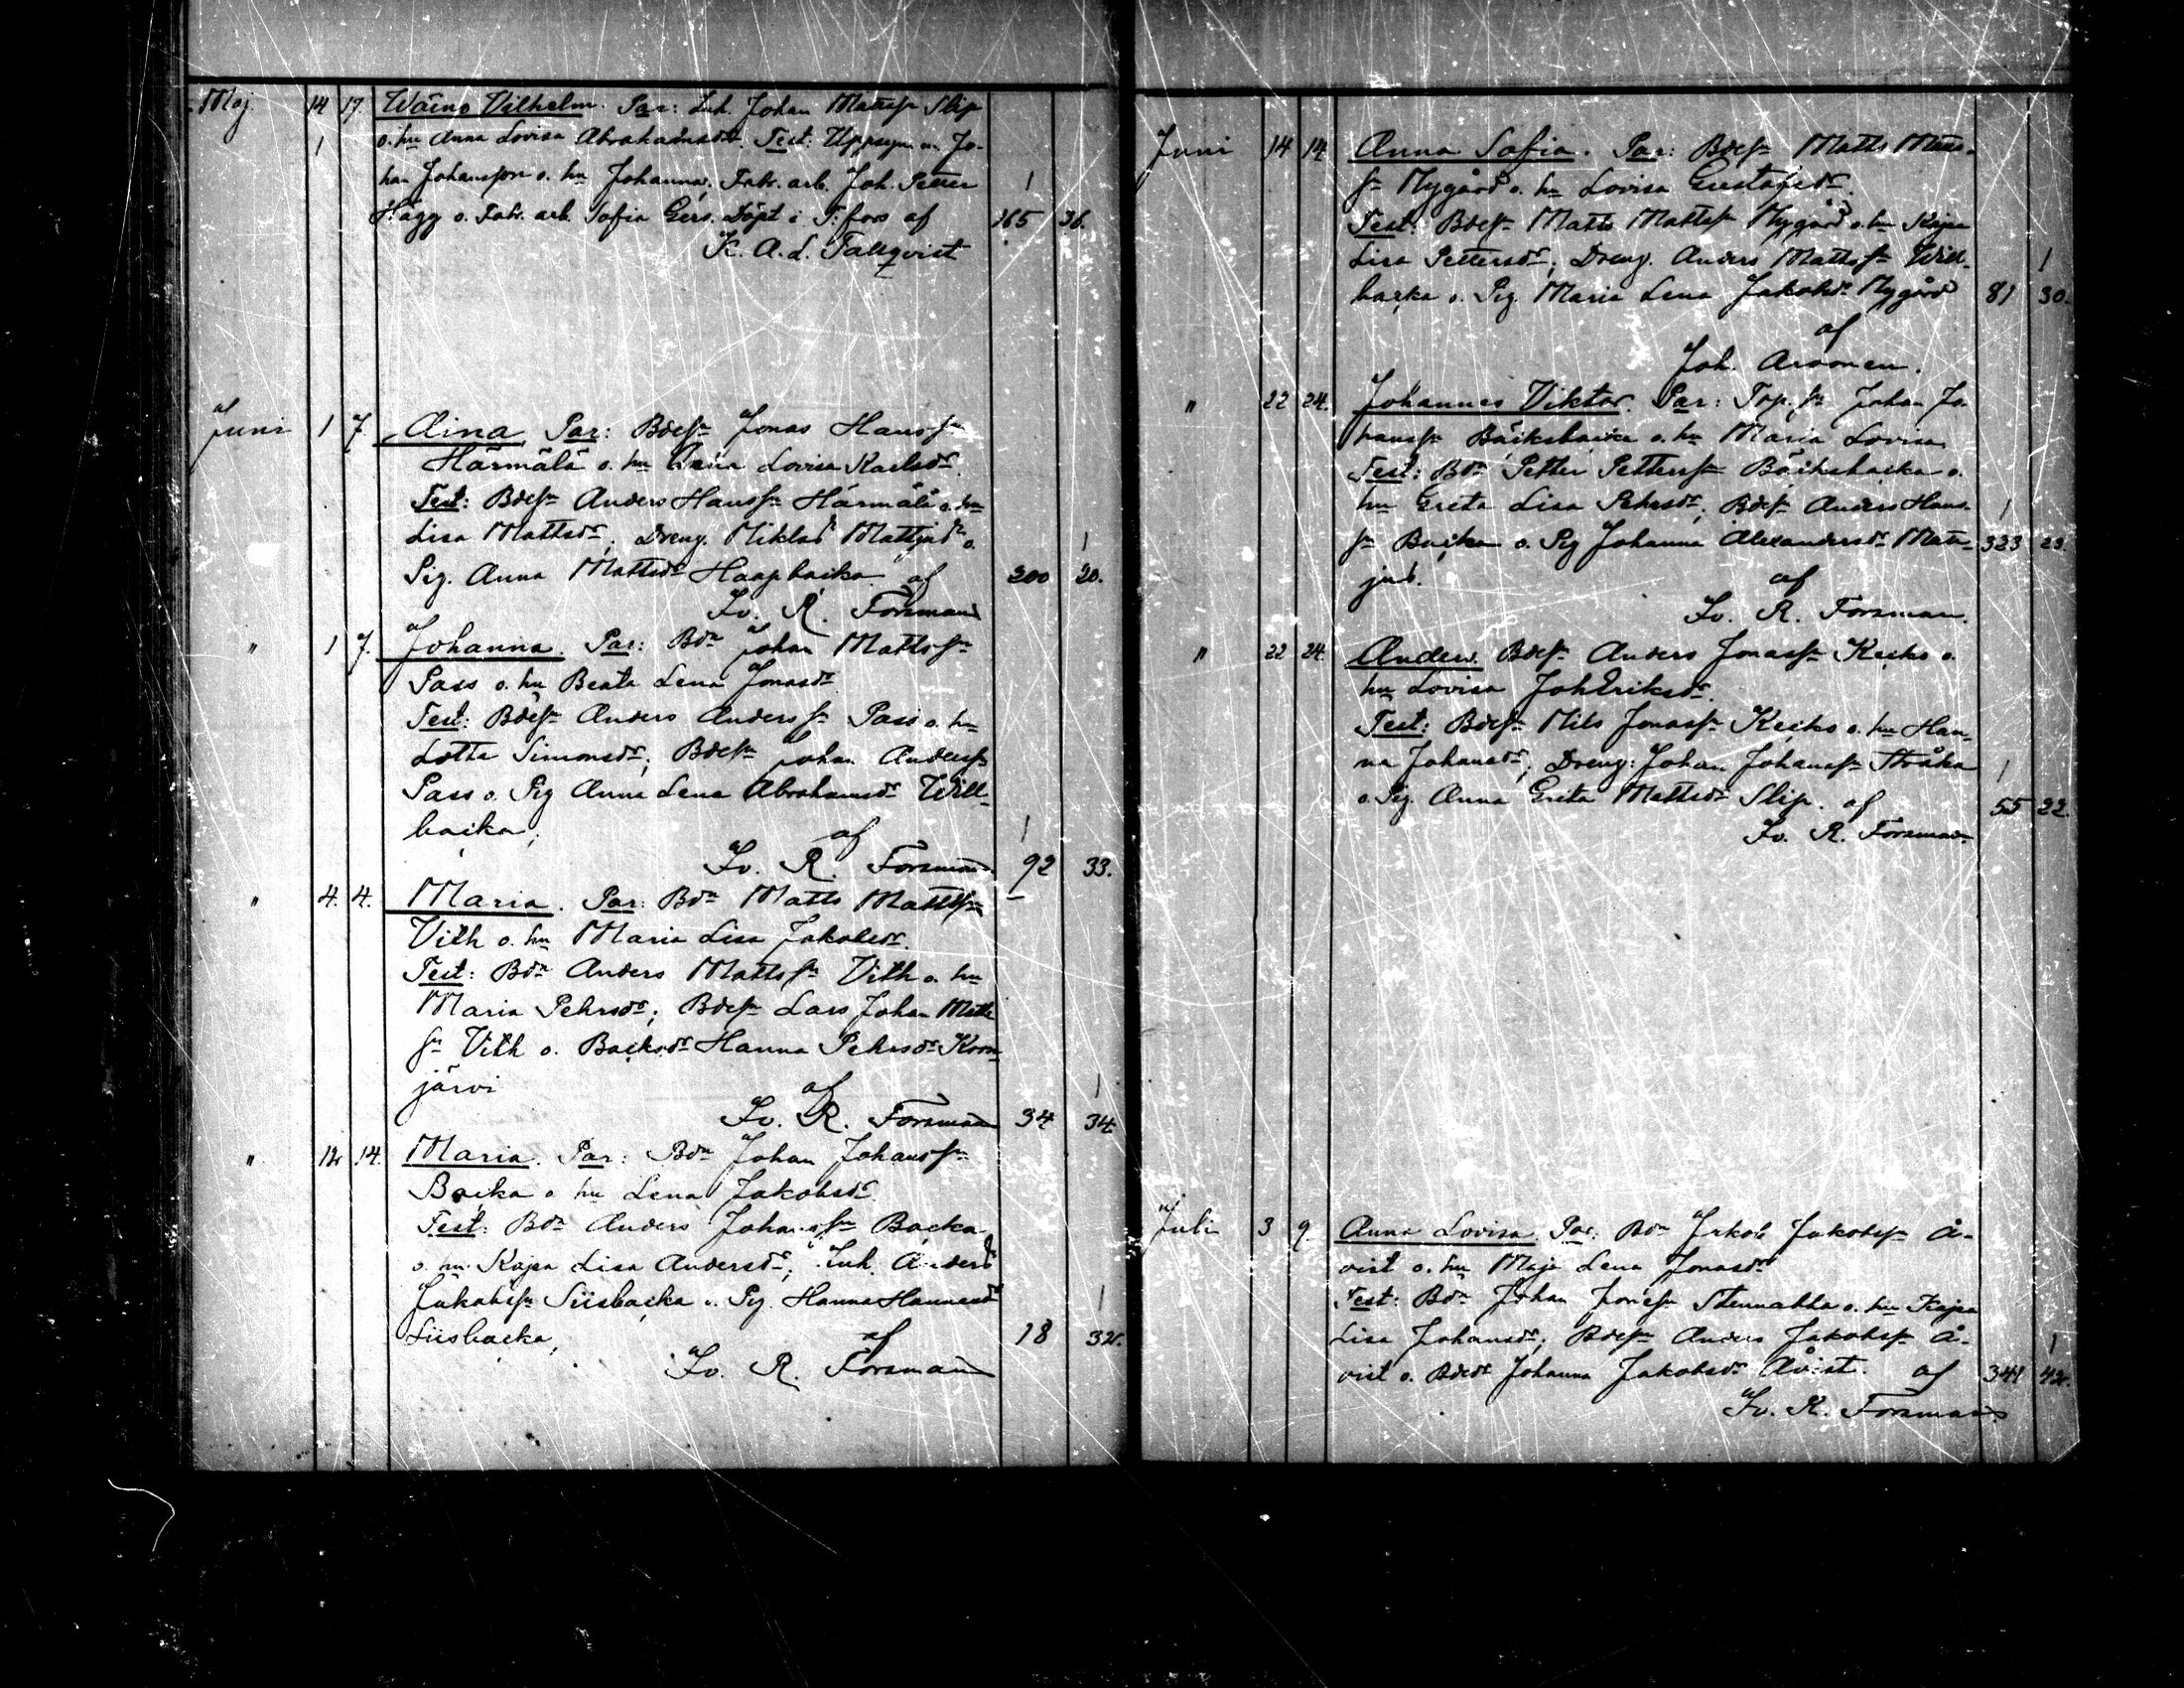 Maj. 14 17. Wäinö Vilhelm. Par: Inh. Johan Mattsſn Slip
1 o. hu Anna Lovisa Abrahamsdr. Test: Uppsyn.m. Jo-
han Johansson o. hu Johanna; Fabr. arb. Joh. Petter 1
Hägg o. Fabr. arb. Sofia Gers. Döpt i T:fors af 265 36.
K. A. L. Tallqvist
Juni 1 7. Aina Par: Bdeſn Jonas Hansſn
Härmälä o. hu Anna Lovisa Karlsdr.
Test: Bdeſn Anders Hansſn Härmälä o. hu
Lisa Mattsdr; Dreng. Niklas Mattjus o. 1
Pig. Anna Mattsdr Haapbacka af 200 20.
Fr. R. Forsman
" 1 7. Johanna. Par: Bdn Johan Mattsſn
Pass o. hu Beata Lena Jonasdr.
Test: Bdeſn Anders Andersſn Pass o. hu
Lotta Simonsdr; Bdeſn Johan Andersſn
Pass o. Pig Anna Lena Abrahamsdr Will-
backa; af 1
Fr. R. Forsman 92 33.
" 4. 4. Maria. Par: Bdn Matts Mattsſn
Vith o. hu Maria Lisa Jakobsdr.
Test: Bdn Anders Mattsſn Vith o. hu
Maria Pehrsdr; Bdeſn Lars Johan Matts
ſn Vith o. Backsdr Hanna Pehrsdr Koon-
järvi af 1
Fr. R. Forsman 34 34.
" 12 14. Maria. Par: Bdn Johan Johansſn
Backa o hu Lena Jakobsdr.
Test: Bdn Anders Johansſn Backa
o. hu Kajsa Lisa Andersdr; Inh. Anders
Jakobsſn Siisbacka o. Pig. Hanna Hannesdr 1
Siisbacka, af 18 32.
Fr. R. Forsman
Juni 14 14. Anna Sofia. Par: Bdeſn Matts Matts-
ſn Nygård o. hu Lovisa Gustafsdr.
Test: Bdeſn Matts Mattsſn Nygård o. hu Kajsa
Lisa Pettersdr; Dreng. Anders Mattsſn Will- 1
backa o. Pig. Maria Lena Jakobsdr Nygård 81 30.
af
Joh. Aroonen.
" 22 24. Johannes Viktor. Par: Torp.ſn Johan Jo-
hansſn Bäcksbacka o. hu Maria Lovisa
Test: Bdn Petter Pettersſn Bäcksbacka o.
hu Greta Lisa Pehrsdr; Bdeſn Anders Hans- 1
ſn Backa o. Pig Johanna Alexandersdr Matt- 323 23.
jus. af
Fr. R. Forsman.
" 22 24. Anders. Bdeſn Anders Jonasſn Kecko o.
hu Lovisa Joh.Eriksdr.
Test: Bdeſn Nils Jonasſn Kecko o. hu Han-
na Johansdr; Dreng: Johan Johansſn Stråka 1
o. Pig. Anna Greta Mattsdr Slip. af 55 22.
Fr. R. Forsman
Juli 3 9. Anna Lovisa. Par: Bdn Jakob Jakobsſn Å-
vist o. hu Maja Lena Jonasdr.
Test: Bdn Johan Jonesſn Stennabba o. hu Kajsa
Lisa Johansdr; Bdeſn Anders Jakobsſn Å- 1
vist o. Bdedr Johanna Jakobsdr Åvist. af 341 42.
Fr. R. Forsman